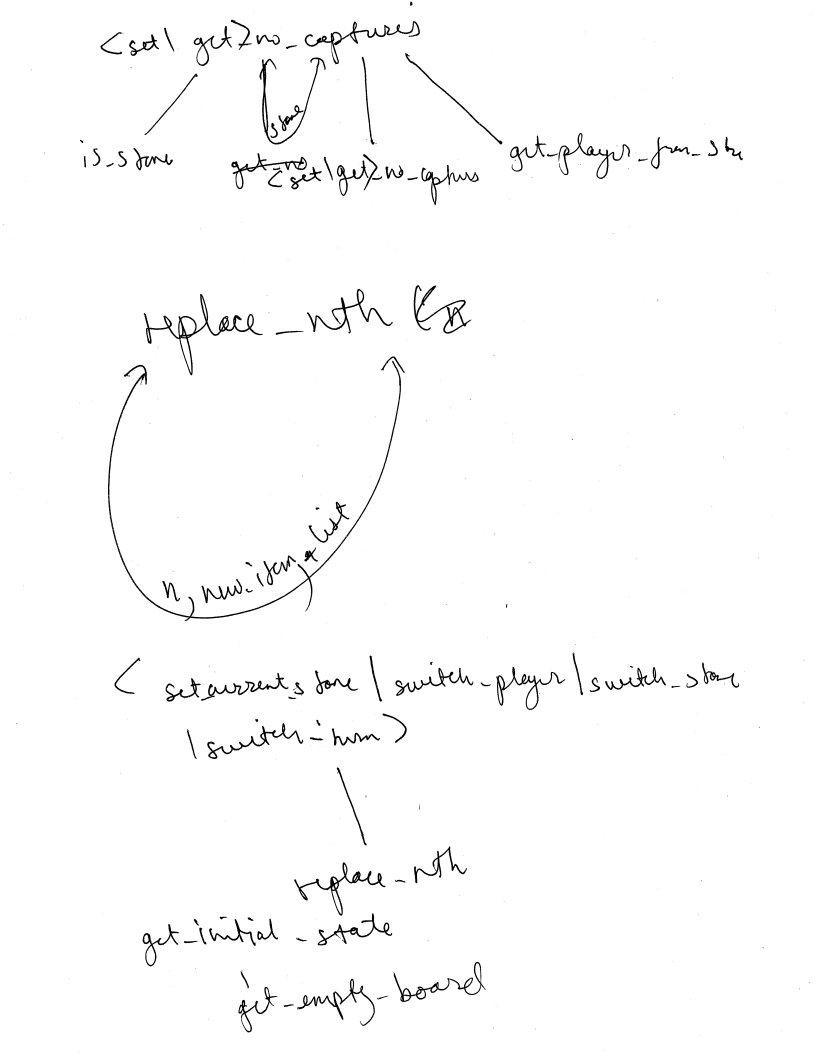 <set| get>no_captures
stone
is_stone
get_no
<set|get>_no_captures
get_player_from_stone
replace_nth (
n, new_item, list
< set_current_stone | switch_player | switch_stone
| switch_turn >
replace_nth
get_initial_state
get_empty_board